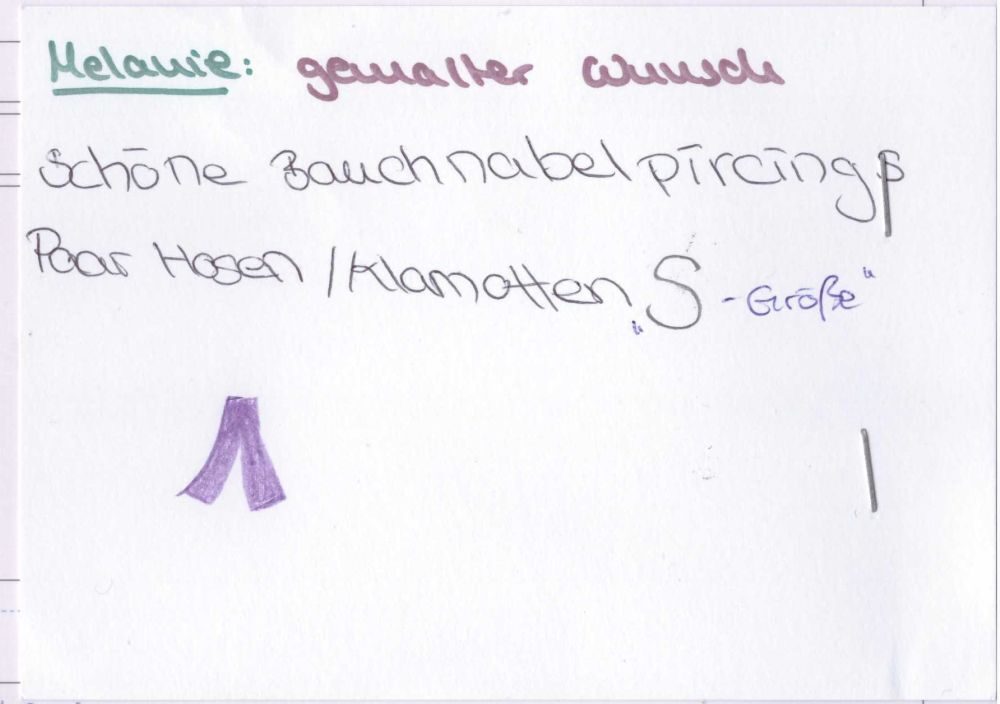 Melanie: gemalter wunsch
Schöne Bauchnabelpircings
Paar Hosen / Klamotten „S-Größe“